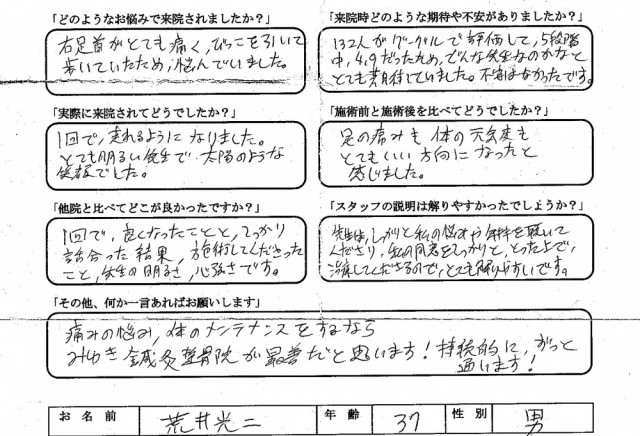 「どのようなお悩みで来院されましたか？」
右足首がとても痛く、びっこを引いて
歩いていたため、悩んでいました。
「来院時どのような期待や不安がありましたか？」
132人がグーグルで評価して、5段階
中、4.9だったため、どんな先生なのかなと
とても期待していました。不安はなかったです。
「実際に来院されてどうでしたか？」
1回で、走れるようになりました。
とても明るい先生で太陽のような
笑顔でした。
「施術前と施術後を比べてどうでしたか？」
足の痛みも体の元気度も
とてもいい方向になったと
感じました。
「他院と比べてどこが良かったですか？」
1回で、良くなったことと、しっかり
話合った結果、施術してくださった
こと、先生の明るさ、心強さです。
「スタッフの説明は解りやすかったでしょうか？」
先生は、しっかりと私の悩みや気持を聴いて
くださり、私の同意をしっかりと、とった上で、
治療してくださるので、とても解りやすいです。
「その他、何か一言あればお願いします」
痛みの悩み、体のメンテナンスをするなら
みゆき鍼灸整骨院が最善だと思います！持続的に、ずっと
通います！
お名前 荒井光二 年齢 37 性別 男